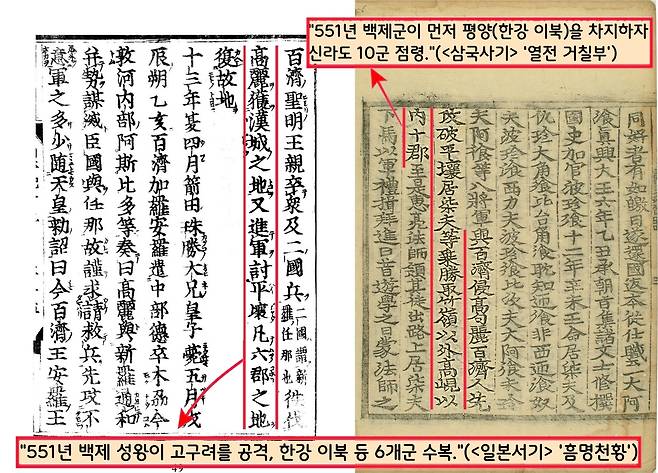 "551년 백제군이 먼저 평양(한강 이북)을 차지하자
신라도 10군 점령."(<삼국사기> '열전 거칠부')
同好者有如皦日遂還國返本從仕職至大阿
飡眞興大王六年乙丑承朝旨集諸文士修撰
國史加官波珍飡十二年辛未王命居柒夫及
仇珍大角飡比台角飡耽知迊飡非西迊飡奴
夫波珍飡西力夫波珍飡比次夫大阿飡未珍
夫阿飡等八將軍與百濟侵高句麗百濟人先
攻破平壤居柒夫等乘勝取竹嶺以外高峴以
內十郡至是惠亮法師領其徒出路上居柒夫
下馬以軍禮揖拜進曰昔遊學之日蒙法師之
百濟聖明王親率衆及二國兵二國謂新羅任那也往伐
高麗獲漢城之地又進軍討平壤凡六郡之地
復故地
十三年夏四月箭田珠勝大兄皇子薨五月戊
辰朔乙亥百濟加羅安羅遣中部德率木刕今
敦河內部阿斯比多等奏曰高麗與新羅通和
幷勢謀滅臣國與任那故謹求請救兵先攻不
意軍之多少隨天皇勅詔曰今百濟王安羅王
"551년 백제 성왕이 고구려를 공격, 한강 이북 등 6개군 수복."(<일본서기> '흠명천황')